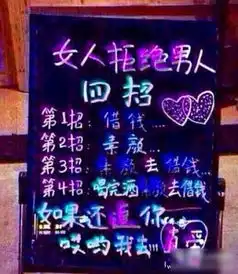 女人拒绝男人
四招
第1招:借钱...
第2招:素颜...
第3招:素颜去借钱...
第4招:喝完酒素颜去借钱
如果还追你
哎哟我去!!!真爱